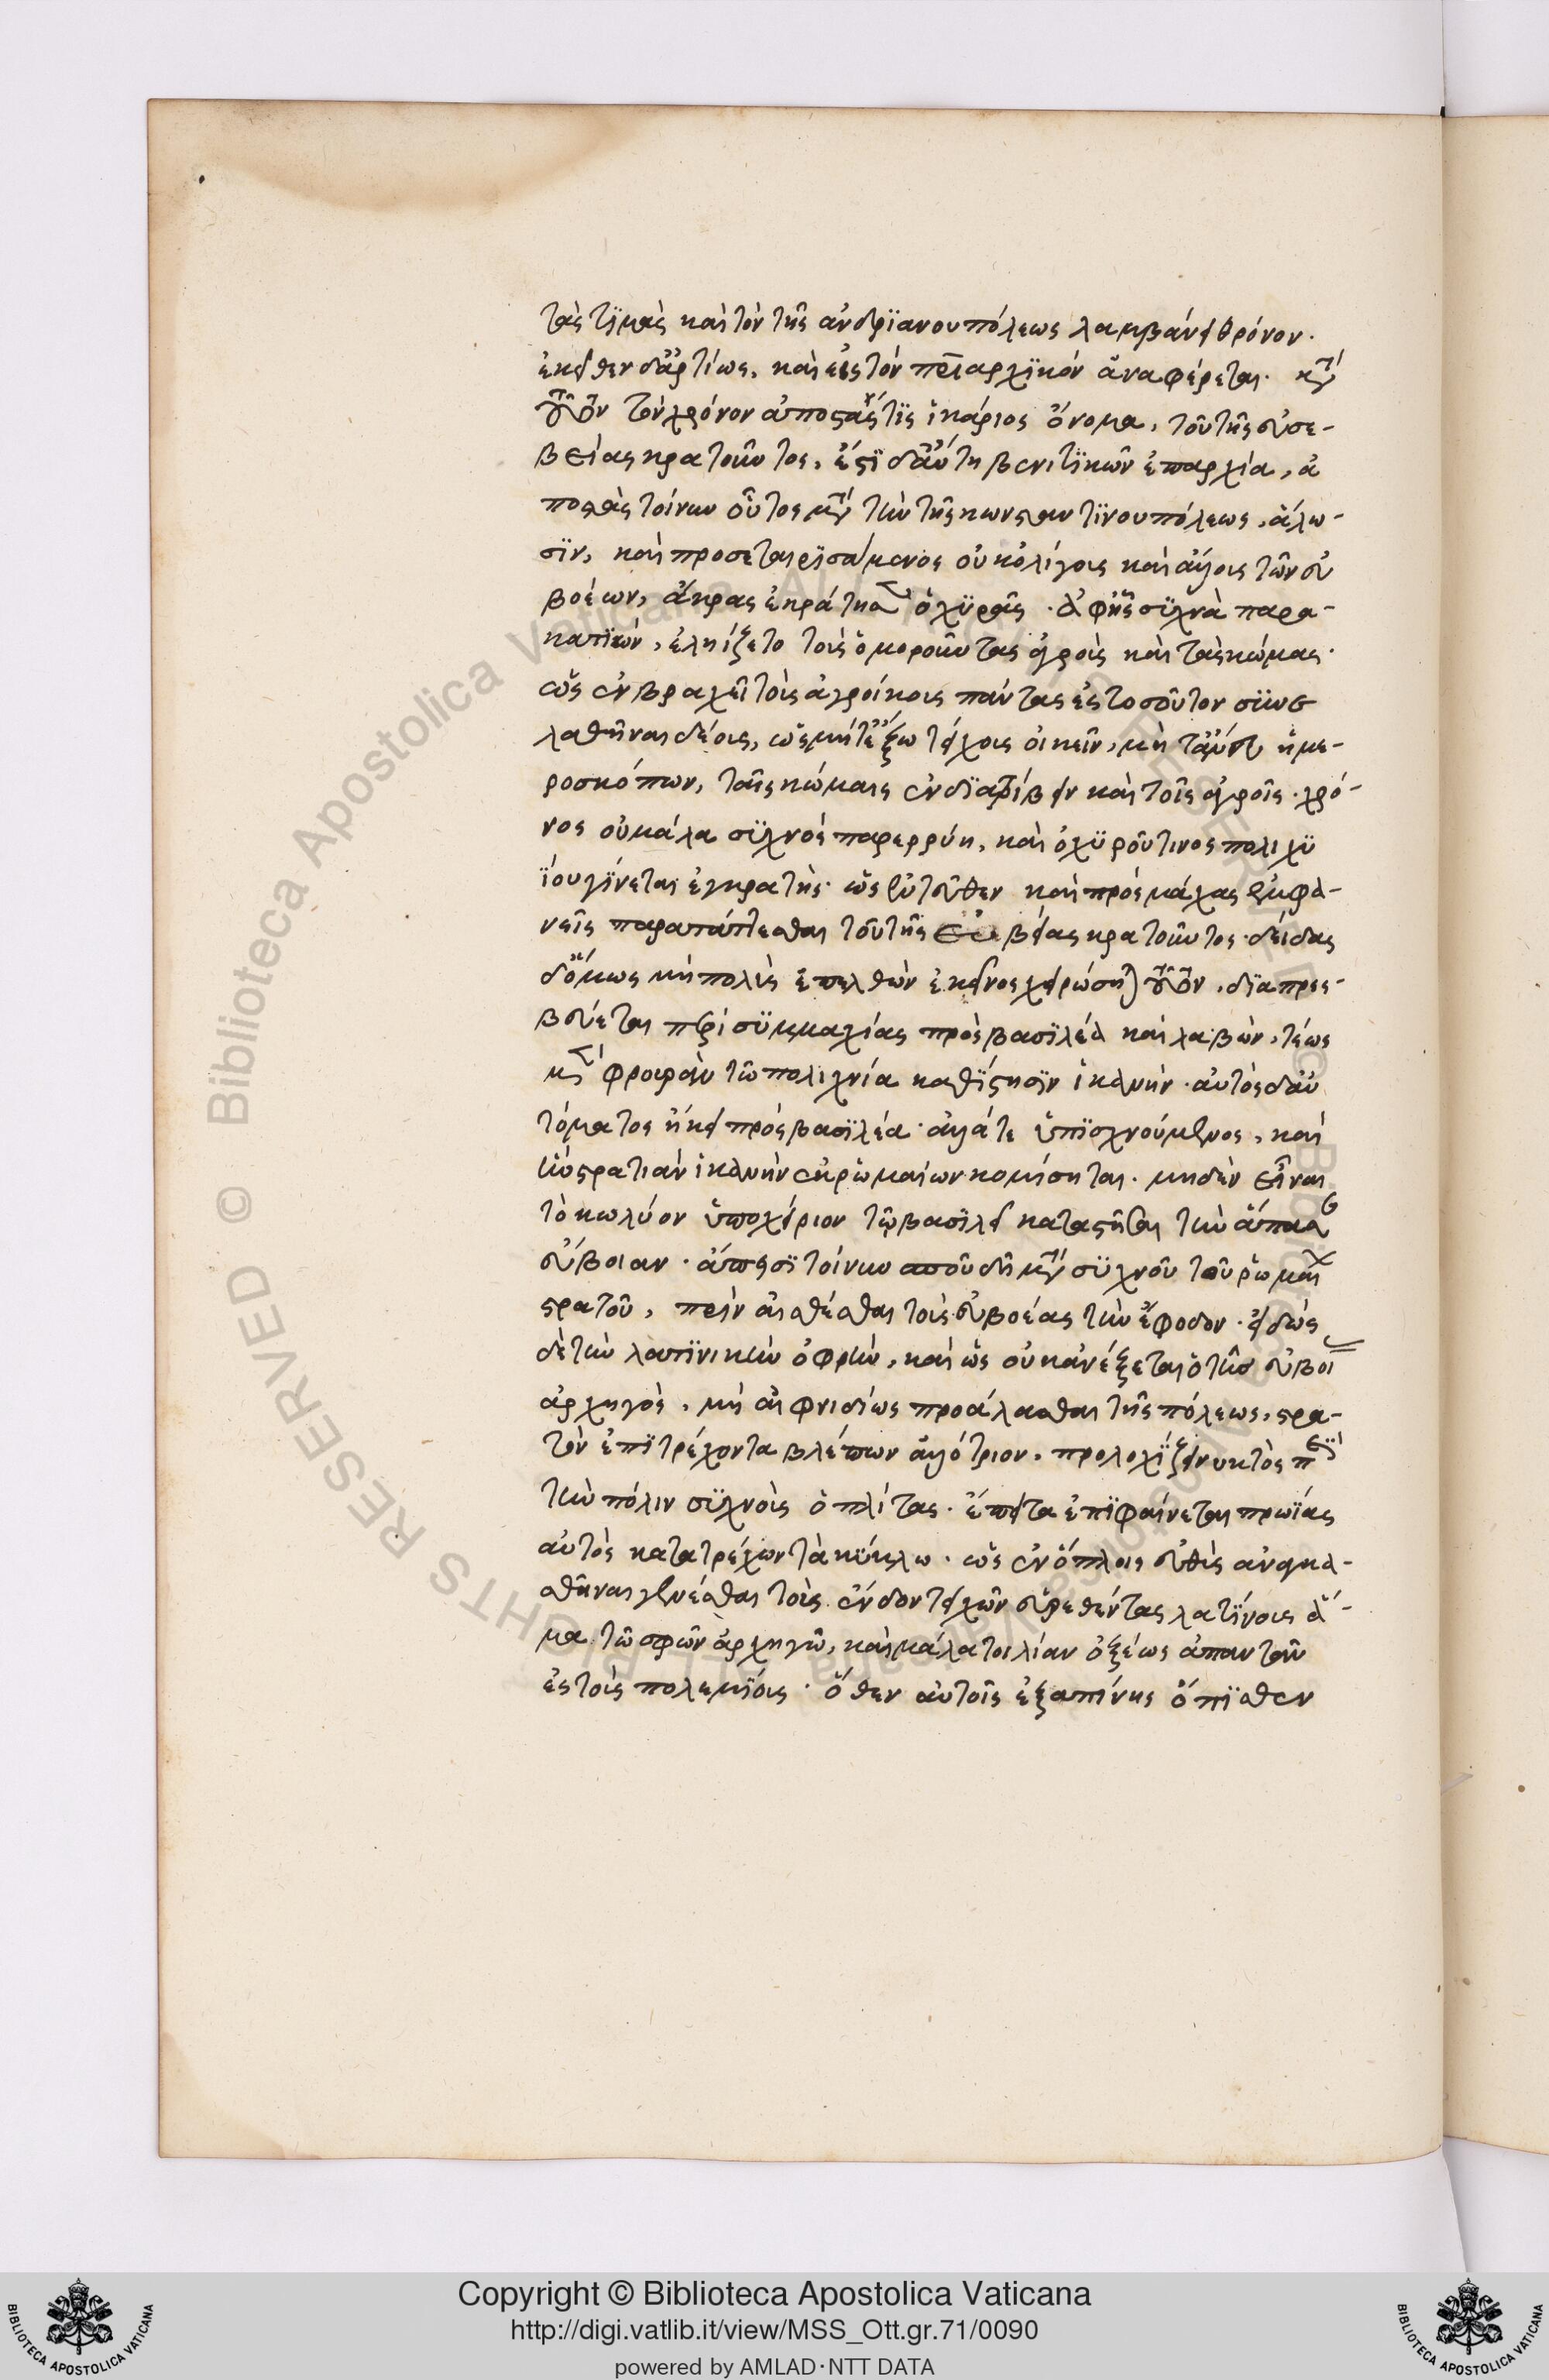 τὰς τϊμὰς καὶ τὸν τῆς ἀνδρϊανουπόλεως λαμβάνει θρόνον.
ἐκεῖθεν δ' ἀρτίως, καὶ εἰς τὸν πριαρχϊκὸν ἀναφέρεται. κατὰ
τοῦτον τὸν χρόνον ἀποστάς τϊς ἰκάριος ὄνομα, τοῦ τῆς εὐσε-
βείας κρατοῦντος, ἔστϊ δ' αὕτη βενιτϊκῶν ἐπαρχία, ἀ
ποστὰς τοίνυν οὗτος μετὰ τὴν τῆς κωνσταντϊνουπόλεως, ἅλω-
σϊν, καὶ προσεταιρϊσάμενος οὐκ ὀλίγοις καὶ ἄλλοις τῶν εὐ
βοέων, ἄκρας ἐκράτησε ὀχϋρᾶς. ἀφ' ἧς σϋχνὰ παρα-
κατϊὼν, ἐληίζετο τοὺς ὁμοροῦντας ἀγροὺς καὶ τὰς κώμας.
ὡς ἐν βραχεῖ τοὺς ἀγροίκους πάντας ἐς τοσοῦτον σϋνε
λαθῆναι δέους, ὡς μήτε ἔξω τείχους οἰκεῖν, μὴ τ' ἄνευ ἡμε-
ροσκόπων, ταῖς κώμαις ἐνδϊατρίβειν καὶ τοῖς ἀγροῖς. χρό-
νος οὐ μάλα σϋχνὸς παρερρύη, καὶ ὀχϋροῦ τινος πολιχϋ
ΐου γϊνεται ἐγκρατής. ὡς ἐντεῦθεν καὶ πρὸς μάχας ἐμφα-
νεῖς παρατάττεσθαι τοῦ τῆς εὐβείας κρατοῦντος. δείσας
δ' ὅμως μὴ πολὺς ἐπελθὼν ἐκεῖνος χειρώσηται τοῦτον, δϊαπρεσ-
βεύεται περὶ σϋμμαχίας πρὸς βασϊλέα καὶ λαβὼν, τέως
μὲν φρουρὰν τῶ πολιχνία καθΐστησϊν ἱκανὴν. αὐτὸς δ' αὐ
τόματος ἥκει πρὸς βασϊλέα. ἄλλά τε ὑπϊσχνούμενος, καὶ
ἢν στρατιὰν ἱκανὴν ἐκ ῥωμαίων κομίσηται. μηδὲν εἶναι
τὸ κωλύον ὑποχείριον τῷ βασϊλεῖ καταστῆσαι τὴν ἅπασαν
εὔβοιαν. ἄπεισϊ τοίνυν σπουδῆ μετὰ σϋχνοῦ τοῦ ῥωμαϊκοῦ
στρατοῦ, πρὶν αἰσθέσθαι τοὺς εὐβοέας τὴν ἔφοδον. εἰδὼς
δὲ τὴν λατϊνικὴν ὀφρὺν, καὶ ὡς οὐκ ἀνέξεται ὁ τῆς εὐβοί
ἀρχηγὸς, μὴ αἰφνιδίως προάλλασθαι τῆς πόλεως, στρα-
τὸν ἐπϊτρέχοντα βλέπων ἀλλότριον, προλοχΐζει νυκτὸς περὶ
τὴν πόλιν σϋχνοὺς ὁπλίτας. ἔπειτα ἐπϊφαίνεται πρωΐας
αὐτὸς κατατρέχων τὰ κύκλω. ὡς ἐν ὅπλοις εὐθὺς ἀναγκα-
σθῆναι γενέσθαι τοὺς ἔνδον τειχῶν εὑρεθέντας λατϊνους ἅ-
μα τῶ σφῶν ἀρχηγῶ, καὶ μάλα τοι λίαν ὀξέως ἀπαντᾶν
ἐς τοὺς πολεμϊους. ὅθεν αὐτοῖς ἐξαπίνης ὄπϊσθεν
Copyright © Biblioteca Apostolica Vaticana
http://digi.vatlib.it/view/MSS_Ott.gr.71/0090
powered by AMLAD·NTT DATA